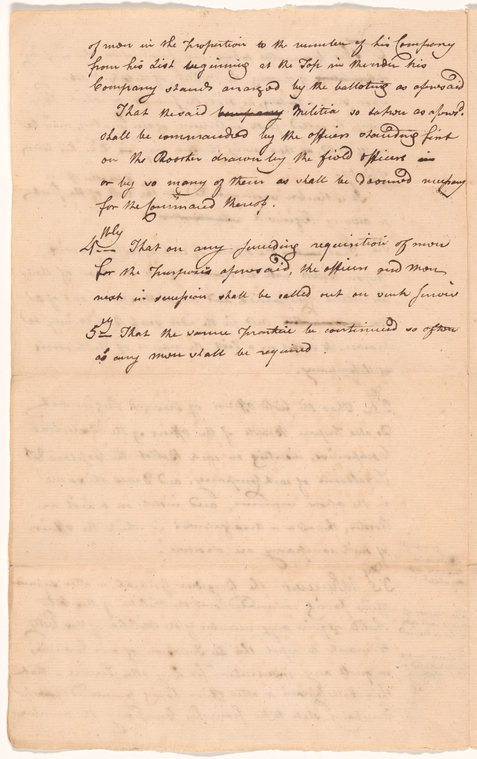 of men in the proportion to the number of his Company
from his List beginning at the Top in the order his
Company stands arranged by the balloting as aforesaid
That the said company Militia so taken as afores.d
shall be commanded by the officers standing first
on the Rooster drawn by the field officers in
or by so many of them as shall be deemed necessary
for the Command thereof.
4thly That on any succeeding requisition of men
for the Purposes aforesaid, the officers and Men
next in succession shall be called out on such Service
5thly That the same Practice be continued so often
as any men shall be required.